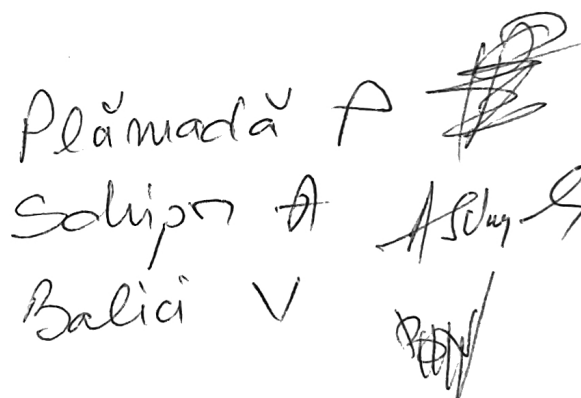 Plămadă P
Schipor A
Balici V